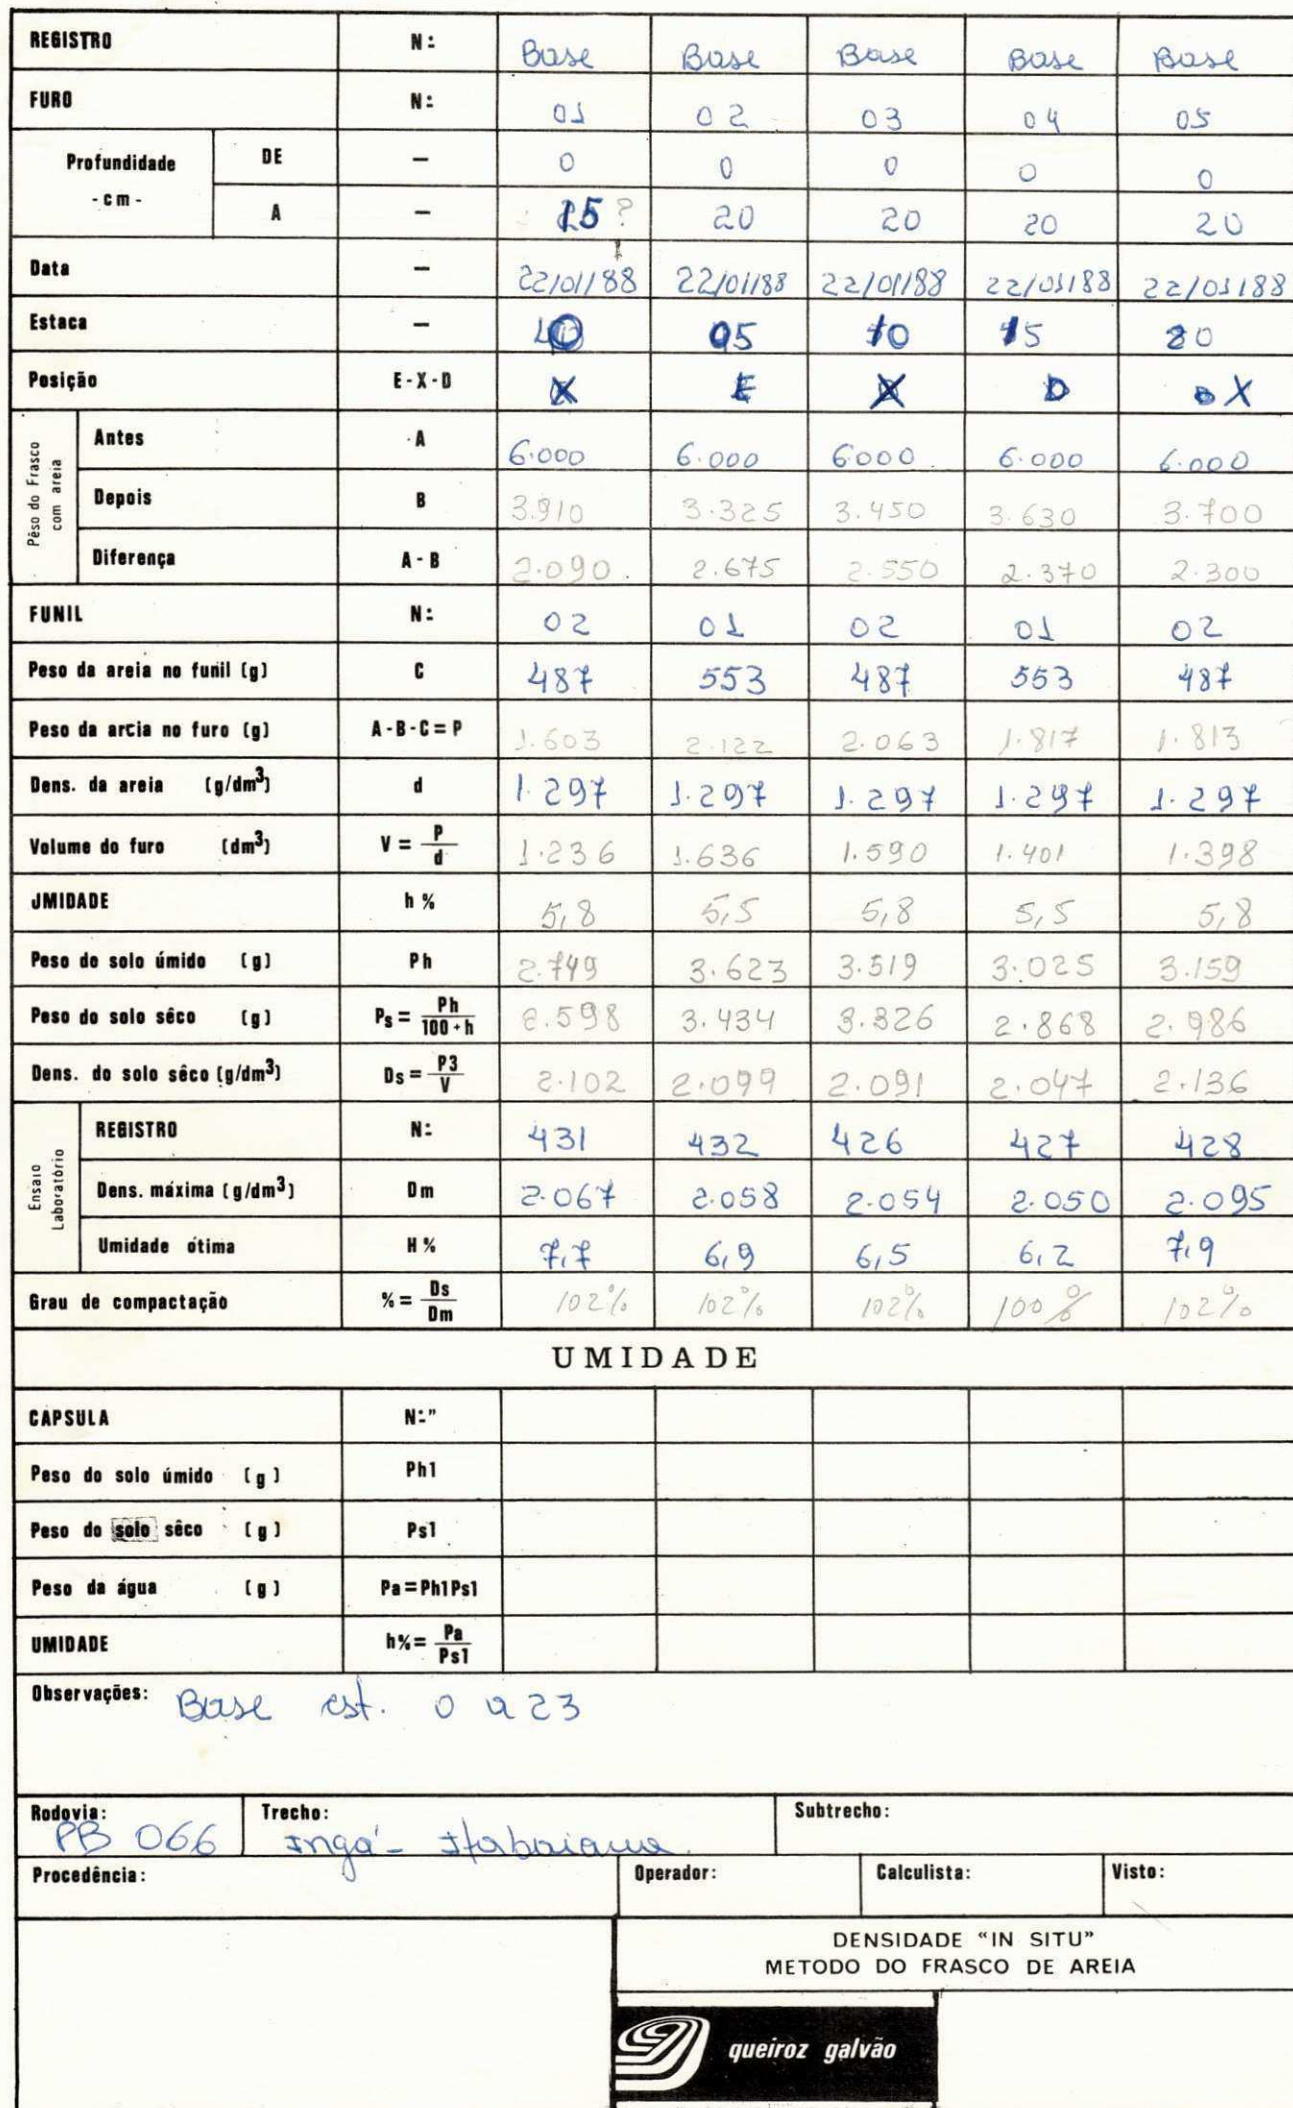 REGISTRO N: Base Base Base Base Base
FURO N: 01 02 03 04 05
Profundidade - cm - DE — 0 0 0 0 0
A — 15 ? 20 20 20 20
Data — 22/01/88 22/01/88 22/01/88 22/01/88 22/01/88
Estaca — 0 05 10 15 20
Posição E-X-D X E X D X
Pêso do Frasco com areia
Antes A 6.000 6.000 6.000 6.000 6.000
Depois B 3.910 3.325 3.450 3.630 3.700
Diferença A-B 2.090 2.675 2.550 2.370 2.300
FUNIL N: 02 01 02 01 02
Peso da areia no funil (g) C 487 553 487 553 487
Peso da arcia no furo (g) A-B-C=P 1.603 2.122 2.063 1.817 1.813
Dens. da areia (g/dm³) d 1.297 1.297 1.297 1.297 1.297
Volume do furo (dm³) V = P/d 1.236 1.636 1.590 1.401 1.398
JMIDADE h % 5,8 5,5 5,8 5,5 5,8
Peso do solo úmido (g) Ph 2.749 3.623 3.519 3.025 3.159
Peso do solo sêco (g) Ps = Ph/100+h 2.598 3.434 3.326 2.868 2.986
Dens. do solo sêco (g/dm³) Ds = P3/V 2.102 2.099 2.091 2.047 2.136
Ensaio Laboratório
REGISTRO N: 431 432 426 427 428
Dens. máxima (g/dm³) Dm 2.067 2.058 2.054 2.050 2.095
Umidade otima H % 7,7 6,9 6,5 6,2 7,9
Grau de compactação % = Ds/Dm 102% 102% 102% 100% 102%
UMIDADE
CAPSULA N:"
Peso do solo úmido (g) Ph1
Peso do solo sêco (g) Ps1
Peso da água (g) Pa=Ph1Ps1
UMIDADE h%= Pa/Ps1
Observações: Base est. 0 a 23
Rodovia: PB 066 Trecho: Ingá - Itabaiana. Subtrecho:
Procedência: Operador: Calculista: Visto:
DENSIDADE "IN SITU"
METODO DO FRASCO DE AREIA
queiroz galvão